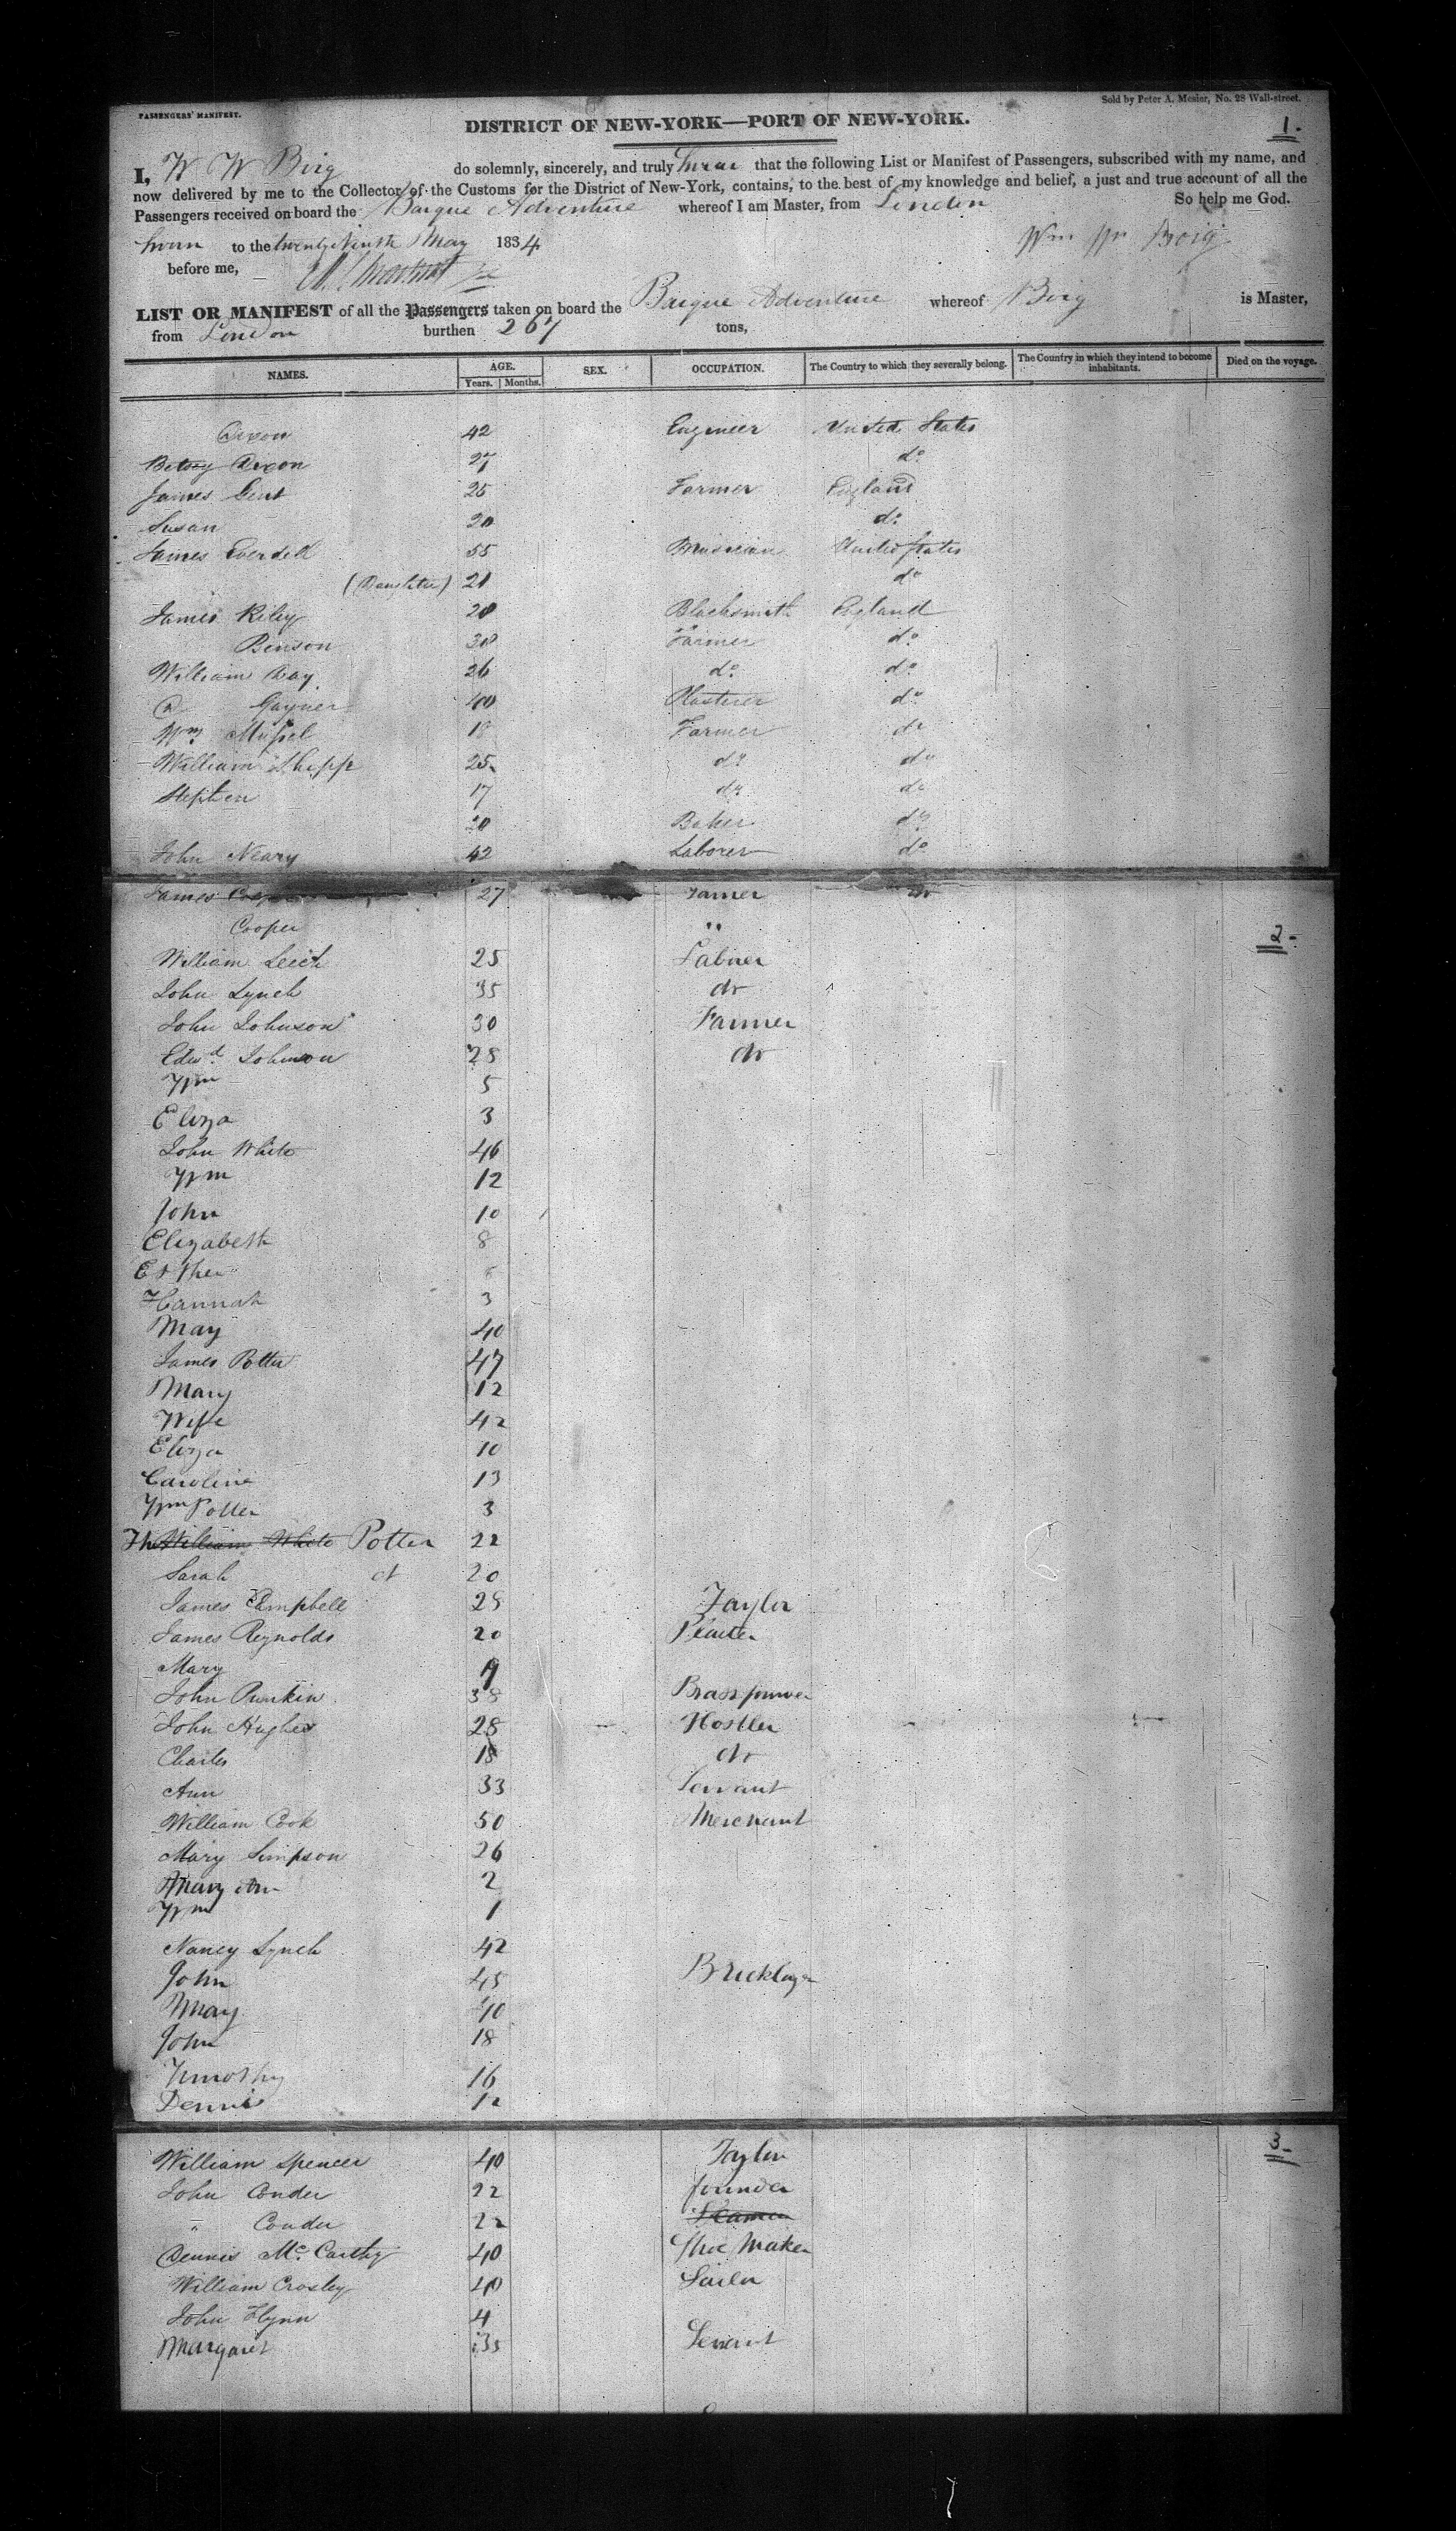 PASSENGERS' MANIFEST.
Sold by Peter A. Mesier, No. 28 Wall-street.
DISTRICT OF NEW-YORK—PORT OF NEW-YORK.
1.
I, W W do solemnly, sincerely, and truly that the following List or Manifest of Passengers, subscribed with my name, and
now delivered by me to the Collector of the Customs for the District of New-York, contains, to the best of my knowledge and belief, a just and true account of all the
Passengers received on board the Barque Adventure whereof I am Master, from London So help me God.
Sworn to the twenty Ninth May 1834
before me,
LIST OR MANIFEST of all the Passengers taken on board the Barque Adventure whereof is Master,
from London burthen 267 tons,
NAMES. AGE. SEX. OCCUPATION. The Country to which they severally belong. The Country in which they intend to become inhabitants. Died on the voyage.
Years. Months.
42 Engineer United States
Betsey 27 do
James Gent 25 Farmer England
Susan 20 do
James 55 Musician United States
(Daughter) 21 do
James Riley 20 Blacksmith England
Benson 30 Farmer do
William Day 26 do do
Gayner 40 Plasterer do
Wm Farmer do
William 25 do do
Stephen 17 do do
20 Baker do
John Neary 42 Laborer do
James 27 Farmer do
Cooper "
2
William Leech 25
John Lynch 35 do
John Johnson 30 Farmer
Edwd Johnson 28 do
Wm 5
Eliza 3
John White 46
Wm 12
John 10
Elizabeth 8
Esther
Hannah 3
May 40
James Potter 47
Mary 12
Wife 42
Eliza 10
Caroline 13
Wm Potter 3
William White Potter 22
Sarah 20
James Campbell 25 Taylor
James Reynolds 20
Mary
John 38
John Hughes 28 Hostler
Charles 18 do
Ann 33 Servant
William Cook 50 Merchant
Mary Simpson 26
Mary Ann 2
Wm 1
Nancy Lynch 42
John 45 Bricklayer
May 40
John 18
Timothy 16
Dennis 12
3
William Spencer 40 Taylor
John Conder 22 founder
" Conder 22 Seaman
Dennis McCarthy 40 Shoe Maker
William Crosley 40 Sailor
John Flynn 4
Margaret 35 Servant